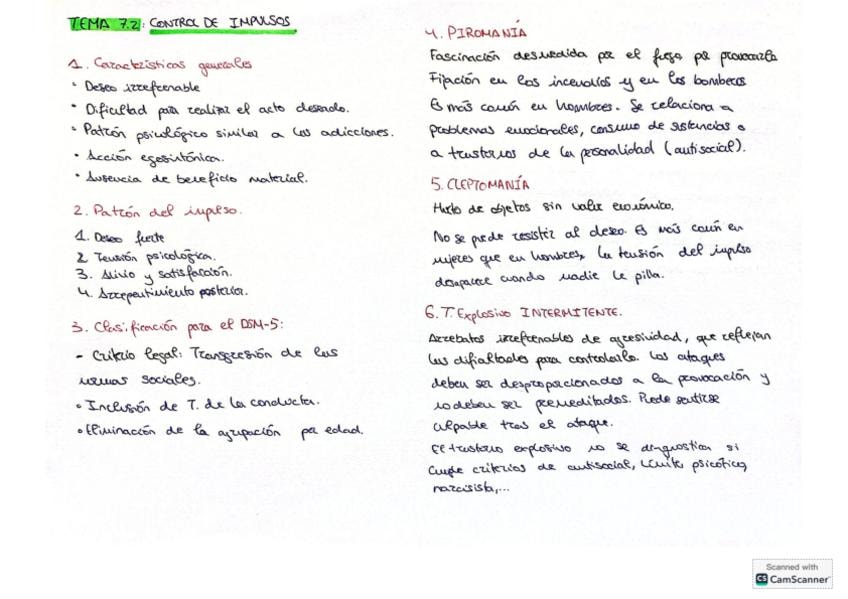 TEMA 7.2: CONTROL DE IMPULSOS
1. Características generales
• Deseo irrefrenable
• Dificultad para realizar el acto deseado.
• Patrón psicológico similar a las adicciones.
• Acción egosintónica.
• Ausencia de beneficio material.
2. Patrón del impulso.
1. Deseo fuerte
2 Tensión psicológica.
3. Alivio y satisfacción.
4. Arrepentimiento posterior.
3. Clasificación para el DSM-5:
- Criterio legal: Transgresión de las
normas sociales.
• Inclusión de T. de la conducta.
• Eliminación de la agrupación por edad.
4. PIROMANÍA
Fascinación desmedida por el fuego por provocarlo
Fijación en los incendios y en los bomberos
Es más común en hombres. Se relaciona a
problemas emocionales, consumo de sustancias o
a trastornos de la personalidad (antisocial).
5. CLEPTOMANÍA
Hurto de objetos sin valor económico.
No se puede resistir al deseo. Es más común en
mujeres que en hombres, la tensión del impulso
desaparece cuando nadie le pilla.
6. T. Explosivo INTERMITENTE.
Arrebatos irrefrenables de agresividad, que reflejan
las dificultades para controlarlo. Los ataques
deben ser desproporcionados a la provocación y
no deben ser premeditados. Puede sentirse
culpable tras el ataque.
El trastorno explosivo no se diagnostica si
cumple criterios de antisocial, límite, psicótico,
narcisista,...
Scanned with
CS CamScanner